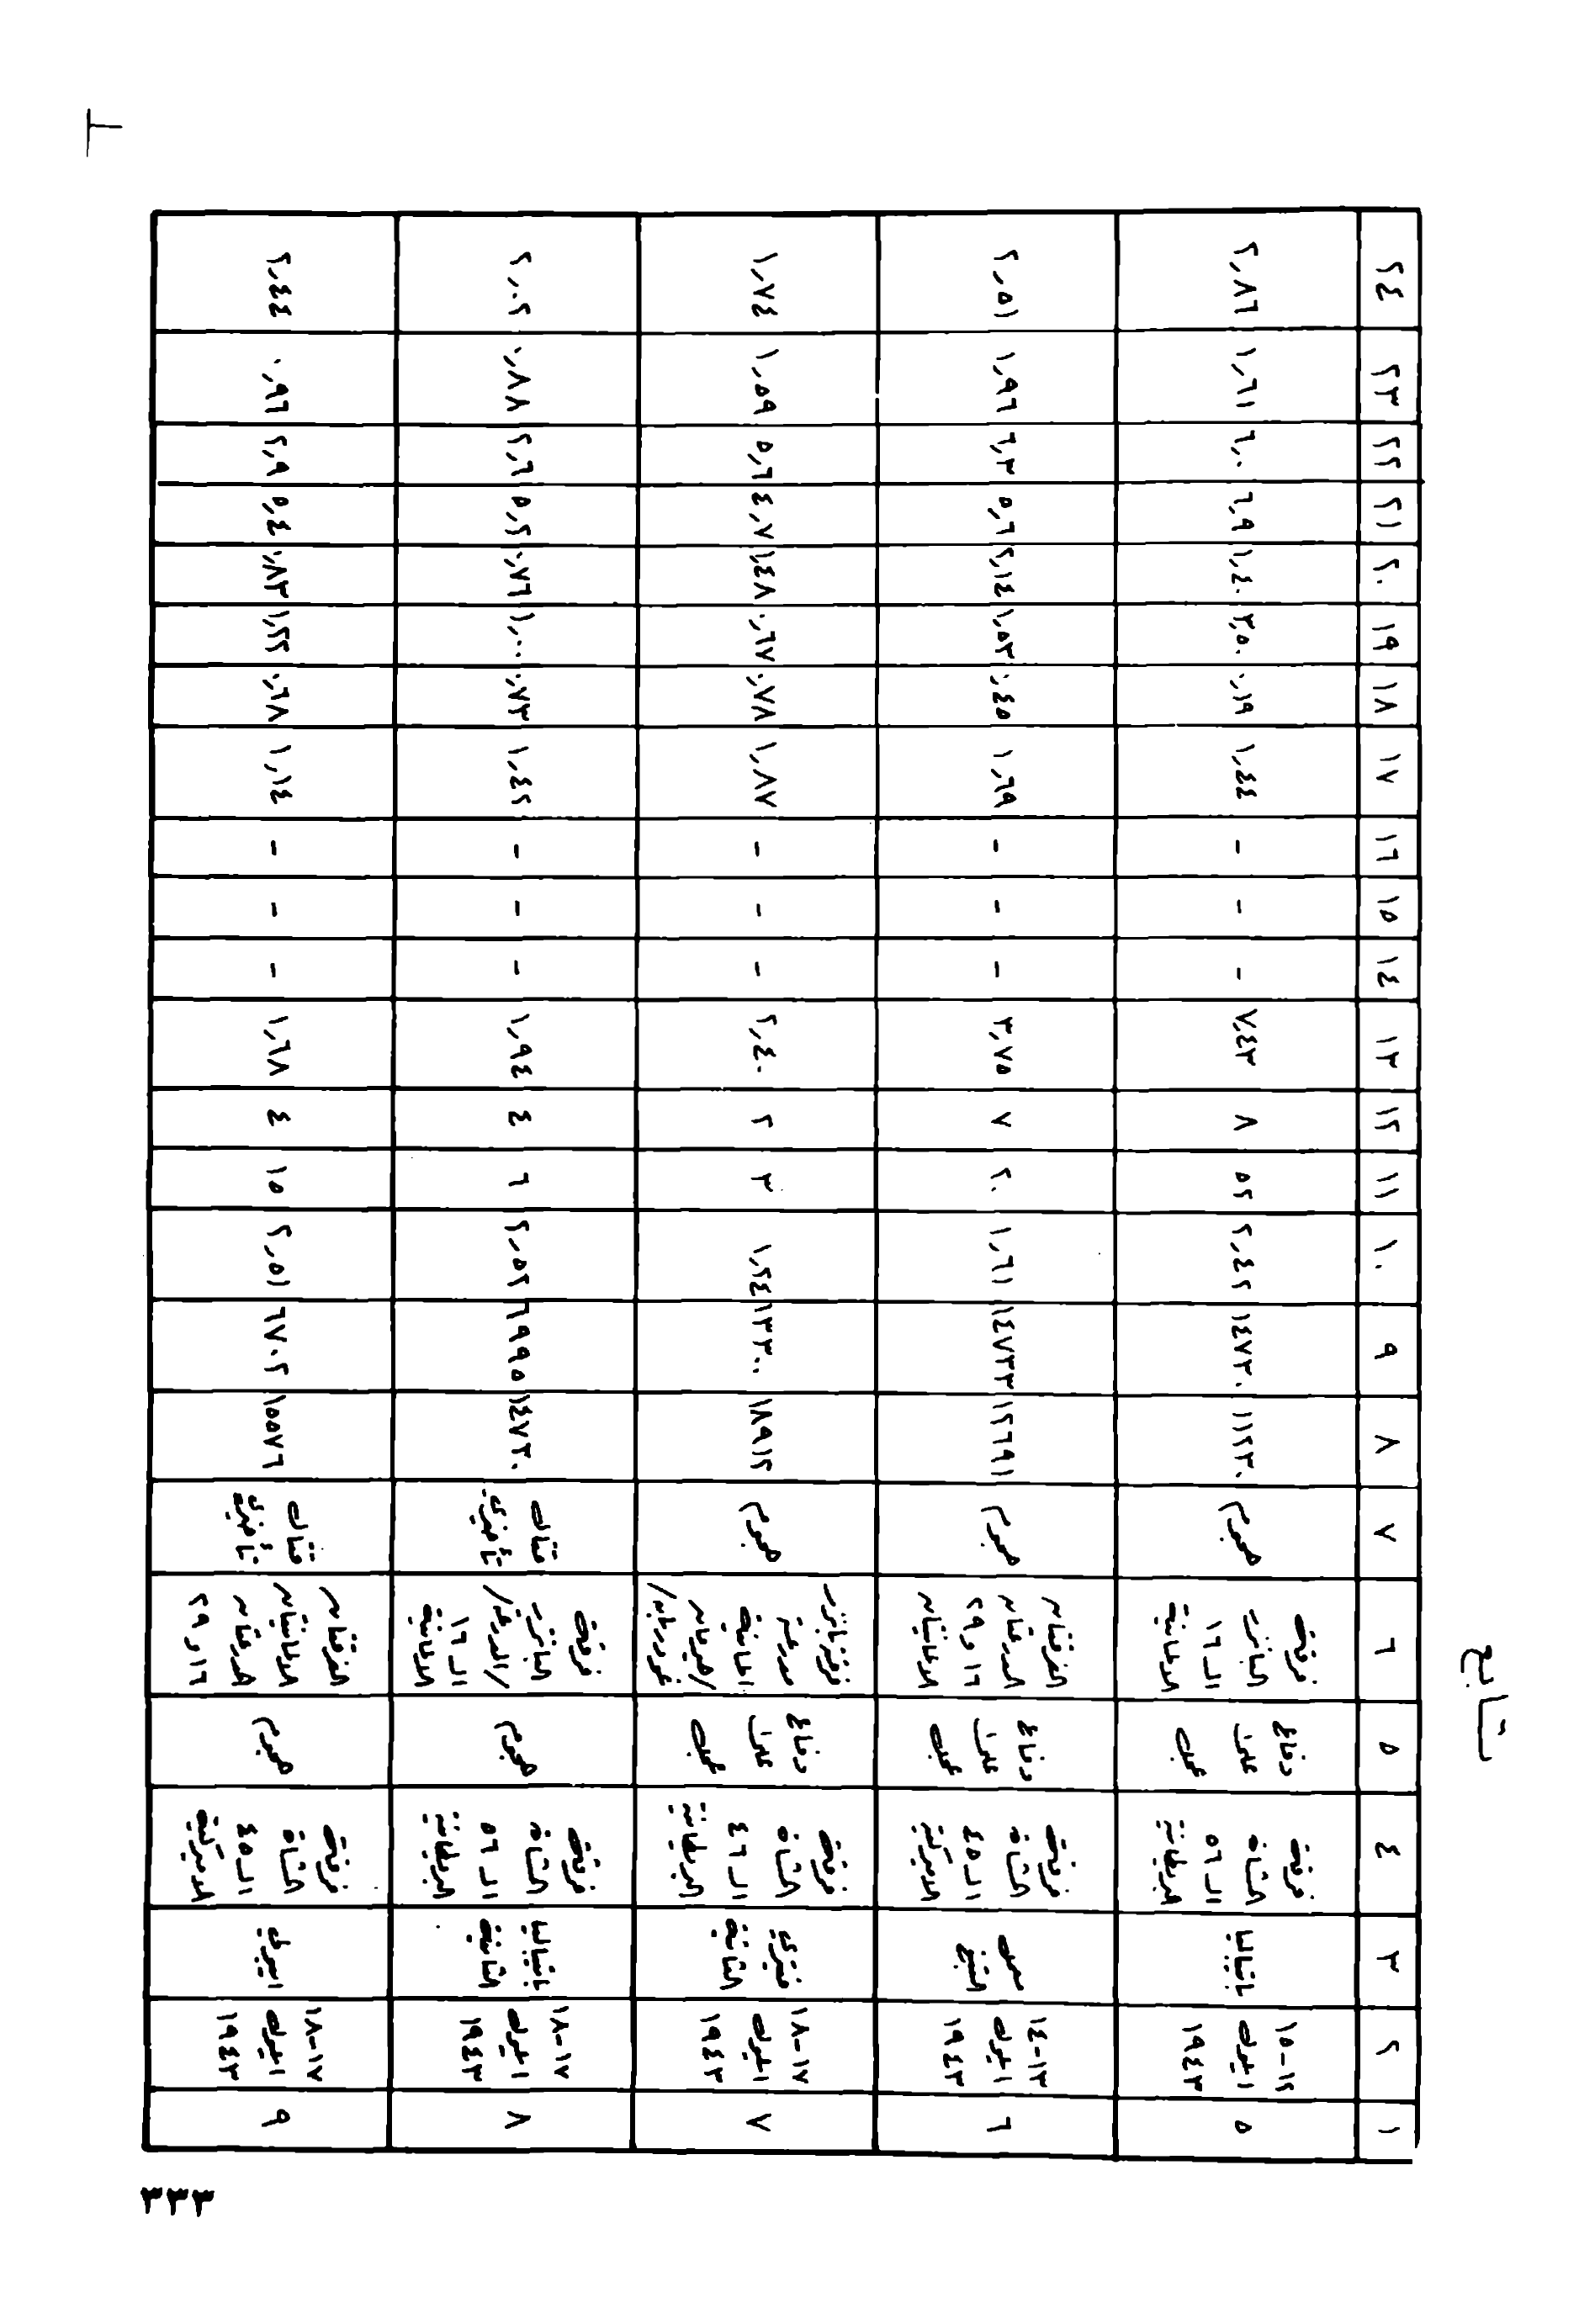 تابع
١ ٢ ٣ ٤ ٥ ٦ ٧ ٨ ٩ ١٠ ١١ ١٢ ١٣ ١٤ ١٥ ١٦ ١٧ ١٨ ١٩ ٢٠ ٢١ ٢٢ ٢٣ ٢٤
٥ ١٢-١٥ ايلول ١٩٤٣ باتيباليا فرقة المشاة الـ ٥٦ البريطانية دفاع على عجل فرقة البانزر الـ ١٦ الالمانية هجوم ١١٢٣٠ ١٤٧٣٠ ٢,٤٢ ٥٢ ٨ ٧,٤٣ - - - ١,٤٤ ٠,١٩ ٣,٥٠ ١,٤٠ ٦,٩ ٦,٠ ١,٦١ ٢,٨٦
٦ ١٣-١٤ ايلول ١٩٤٣ معمل التبغ فرقة المشاة الـ ٤٥ الامريكية دفاع على عجل الفرقتان المدرعتان ١٦ و ٢٩ الالمانيتان هجوم ١٢٦٩١ ١٤٧٣٣ ١,٦١ ٢٠ ٧ ٣,٧٥ - - - ١,٦٩ ٠,٤٥ ١,٥٣ ٢,١٤ ٥,٦ ٦,٣ ١,٩٦ ٢,٥١
٧ ١٧-١٨ ايلول ١٩٤٣ فيتري الثانية فرقة المشاة الـ ٤٦ البريطانية دفاع على عجل فرقة بانزر مدرعة المانية /هيرمان غورنغ/ هجوم ١٨٩١٢ ١٣٣٠٠ ١,٢٤ ٣ ٢ ٢,٤٠ - - - ١,٨٧ ٠,٧٨ ٠,٦٧ ١,٤٨ ٤,٧ ٥,٦ ١,٥٩ ١,٧٤
٨ ١٧-١٨ ايلول ١٩٤٣ باتيباليا الثانية فرقة المشاة الـ ٥٦ البريطانية هجوم فرقة البانزر /المدرعة/ الـ ١٦ الالمانية قتال تأخيري ١٤٧٣٠ ٦٩٩٥ ٢,٥٢ ٦ ٤ ١,٩٤ - - - ١,٤٢ ٠,٧٣ ١,٠٠ ٠,٧٦ ٥,٢ ٢,٦ ٠,٨٨ ٢,٠٢
٩ ١٧-١٨ ايلول ١٩٤٣ ايبولي فرقة المشاة الـ ٤٥ الامريكية هجوم الفرقتان الالمانيتان المدرعتان ١٦ و ٢٩ قتال تأخيري ١٥٥٧٦ ٦٧٠٢ ٢,٥١ ١٥ ٤ ١,٦٨ - - - ١,١٤ ٠,٦٨ ١,٢٢ ٠,٨٣ ٥,٤ ٢,٩ ٠,٩٦ ٢,٤٤
٣٣٣